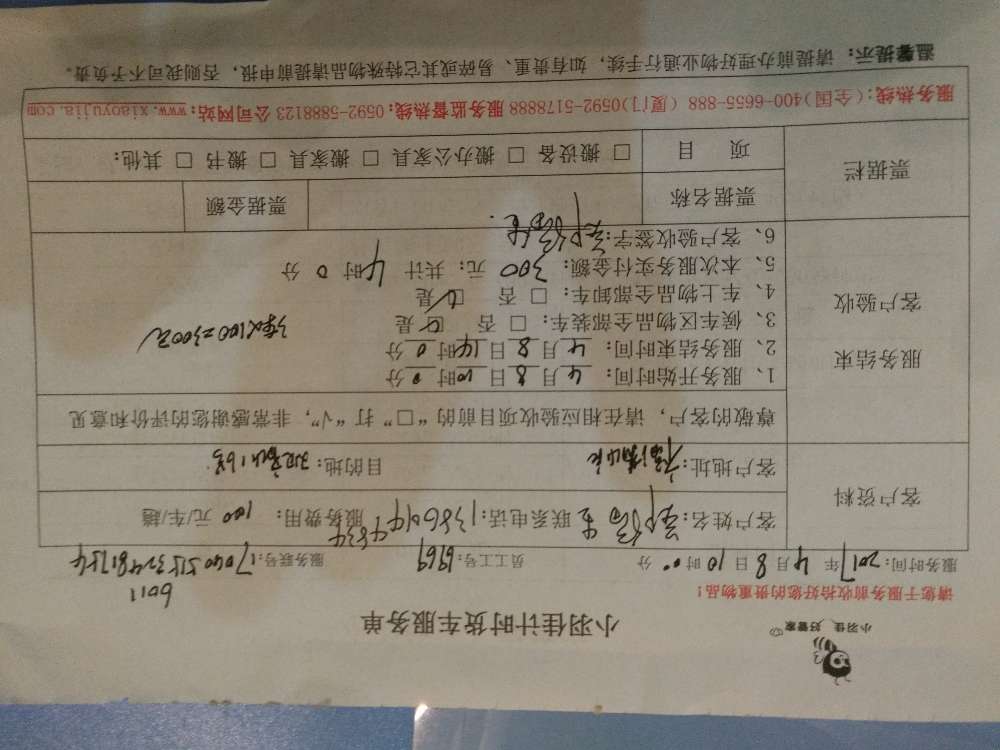 小羽佳 好管家
小羽佳计时货车服务单
请您于服务前收拾好您的贵重物品！
服务时间：2017年4月8日10时00分 员工工号：6969 服务联号：
6011
客户资料
客户姓名： 联系电话： 服务费用：100元/车/趟
客户地址： 目的地：
尊敬的客户，请在相应验收项目前的“□”打“√”，非常感谢您的评价和意见
服务结束
客户验收
1、服务开始时间：4月8日10时0分
2、服务结束时间：4月8日14时0分
3、候车区物品全部装车：□ 否 □ 是
4、车上物品全部卸车：□ 否 □ 是
3车×100=300元
5、本次服务实付金额：300元；共计4时0分
6、客户验收签字：
票据栏
票据名称 票据金额
项目 □ 搬设备 □ 搬办公家具 □ 搬家具 □ 搬书 □ 其他：
服务热线：(全国)400-6655-888 (厦门)0592-5178888 服务监督热线：0592-5888123 公司网站：www.xiaoyujia.com
温馨提示：请提前办理好物业通行手续，如有贵重、易碎或其它特殊物品请提前申报，否则我司不予负责。